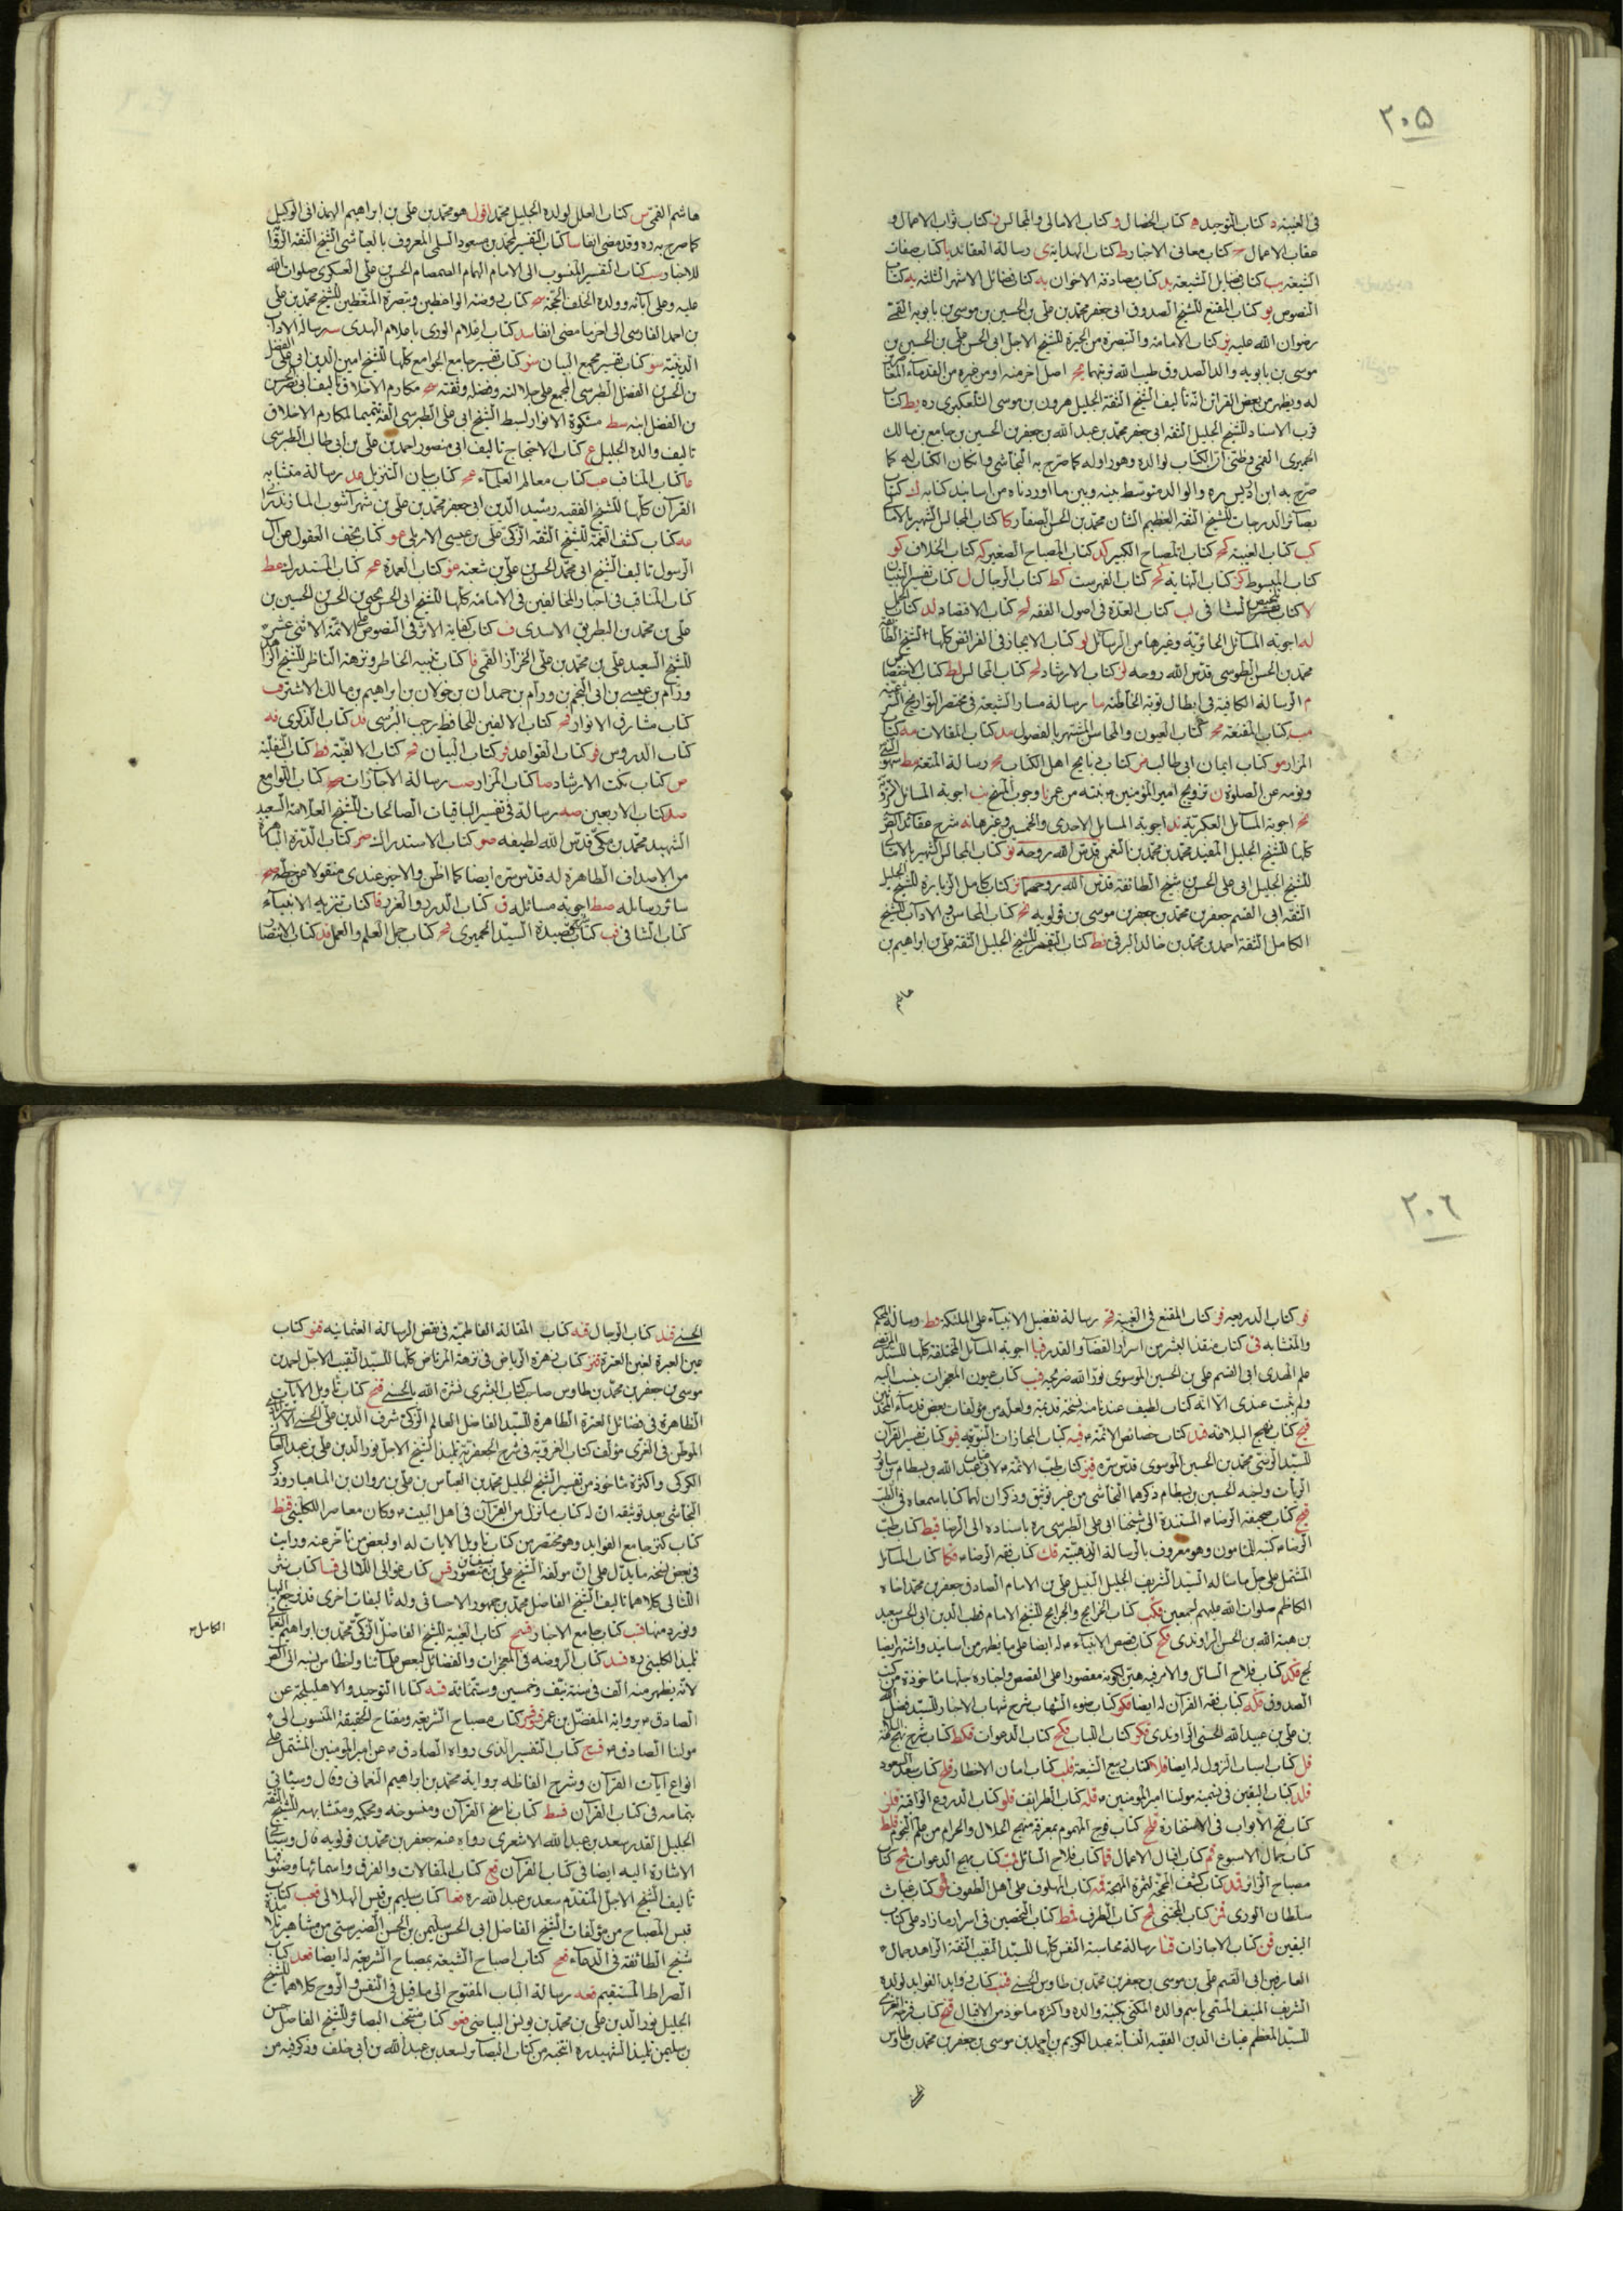 ٢٠٥
فى الغيبة د كتاب التوحيد ه كتاب الخصال و كتاب الامالى والمجالس ز كتاب ثواب الاعمال و
عقاب الاعمال ح كتاب معانى الاخبار ط كتاب الهداية ى رسالة العقائد يا كتاب صفات
الشيعة يب كتاب فضايل الشيعة يد كتاب مصادقة الاخوان يه كتاب فضائل الاشهر الثلثة يه كتاب
النصوص يو كتاب المقنع للشيخ الصدوق ابى جعفر محمد بن على بن الحسين بن موسى بن بابويه القمى
رضوان الله عليه يز كتاب الامامة والتبصرة من الحيرة للشيخ الاجل ابى الحسن على بن الحسين بن
موسى بن بابويه والد الصدوق طيب الله تربتهما يح اصل اخر منه او من غيره من القدماء
له ويظهر من بعض القرائن انه تاليف الشيخ الثقة الجليل هرون بن موسى التلعكبرى ره يط كتاب
قرب الاسناد للشيخ الجليل الثقة ابى جعفر محمد بن عبد الله بن جعفر بن الحسين بن جامع بن مالك
الحميرى القمى وظنى ان الكتاب لوالده وهو راو له كما صرح به النجاشى وان كان الكتاب له كما
صرح به ابن ادريس ره والوالد متوسط بينه وبين ما اوردناه من اسانيد كتابه ك كتاب
بصائر الدرجات للشيخ الثقة العظيم الشان محمد بن الحسن الصفار كا كتاب المجالس الشهير بالامالى
كب كتاب الغيبة كج كتاب المصباح الكبير كد كتاب المصباح الصغير كه كتاب الخلاف كو
كتاب المبسوط كز كتاب النهاية كح كتاب الفهرست كط كتاب الرجال ل كتاب تفسير التبيان
لا كتاب تلخيص الشافى لب كتاب العدة فى اصول الفقه لج كتاب الاقتصاد لد كتاب
له اجوبة المسائل الحائرية وغيرها من الرسائل لو كتاب الايجاز فى الفرائض كلها للشيخ
محمد بن الحسن الطوسى قدس الله روحه لز كتاب الارشاد لح كتاب المجالس لط كتاب الاختصاص
م الرسالة الكافية فى ابطال توبة الخاطئة ما رسالة مسار الشيعة فى مختصر التواريخ الشرعية
مب كتاب المقنعة مج كتاب العيون والمحاسن المشتهر بالفصول مد كتاب المقالات مه كتاب
المزار مو كتاب ايمان ابى طالب مز كتاب ذبايح اهل الكتاب مح رسالة المتعة مط سهو النبى
ونومه عن الصلوة ن تزويج امير المؤمنين بنته من عمر نا وجوب المسح نب اجوبة المسائل
نج اجوبة المسائل العكبرية ند اجوبة المسايل الاحدى والخمسين وغيرها نه شرح عقائد الصدوق
كلها للشيخ الجليل المفيد محمد بن محمد بن النعمن قدس الله روحه نو كتاب المجالس الشهير بالامالى
للشيخ الجليل ابى على الحسن بن شيخ الطائفة قدس الله روحهما نز كتاب كامل الزيارة للشيخ الجليل
الثقة ابى القسم جعفر بن محمد بن جعفر بن موسى بن قولويه نح كتاب المحاسن والاداب للشيخ
الكامل الثقة احمد بن محمد بن خالد البرقى نط كتاب التفسير للشيخ الجليل الثقة على بن ابراهيم بن
هاشم
هاشم القمى س كتاب العلل لولده الجليل محمد اقول هو محمد بن على بن ابراهيم الهمذانى الوكيل
كما صرح به ره وقد مضى انفا سا كتاب التفسير لمحمد بن مسعود السلمى المعروف بالعياشى الشيخ الثقة
للاخبار سب كتاب التفسير المنسوب الى الامام الهمام الصمصام الحسن بن على العسكرى صلوات الله
عليه وعلى ابائه وولده الخلف الحجة سج كتاب روضة الواعظين وتبصرة المتعظين للشيخ محمد بن على
بن احمد الفارسى الى اخر ما مضى انفا سد كتاب اعلام الورى باعلام الهدى سه رسالة الاداب
الدينية سو كتاب تفسير مجمع البيان سز كتاب تفسير جامع الجوامع كلها للشيخ امين الدين ابى على الفضل
بن الحسن بن الفضل الطبرسى المجمع على جلالته وفضله وثقته سح مكارم الاخلاق تاليف ابى نصر الحسن
بن الفضل ابنه سط مشكوة الانوار لسبط الشيخ ابى على الطبرسى الفه تتميما لمكارم الاخلاق
تاليف والده الجليل ع كتاب الاحتجاج تاليف ابى منصور احمد بن على بن ابى طالب الطبرسى
عا كتاب المناقب عب كتاب معالم العلماء عج كتاب بيان التنزيل عد رسالة متشابه
القرآن كلها للشيخ الفقيه رشيد الدين ابى جعفر محمد بن على بن شهر آشوب المازندرانى
عه كتاب كشف الغمة للشيخ الثقة الزكى على بن عيسى الاربلى عو كتاب تحف العقول عن آل
الرسول تاليف الشيخ ابى محمد الحسن بن على بن شعبة عز كتاب العمدة عح كتاب المستدرك عط
كتاب المناقب فى اخبار المخالفين فى الامامة كلها للشيخ ابى الحسن يحيى بن الحسن بن الحسين بن
على بن محمد بن البطريق الاسدى ف كتاب كفاية الاثر فى النصوص على الائمة الاثنى عشر
للشيخ السعيد على بن محمد بن على الخزاز القمى فا كتاب تنبيه الخاطر ونزهة الناظر للشيخ الزاهد
ورام بن عيسى بن ابى النجم بن ورام بن حمدان بن خولان بن ابراهيم بن مالك الاشتر فب
كتاب مشارق الانوار فج كتاب الالفين للحافظ رجب البرسى فد كتاب الذكرى فه
كتاب الدروس فو كتاب القواعد فز كتاب البيان فح كتاب الالفية فط كتاب النفلية
ص كتاب نكت الارشاد صا كتاب المزار صب رسالة الاجازات صج كتاب اللوامع
صد كتاب الاربعين صه رسالة فى تفسير الباقيات الصالحات للشيخ العلامة السعيد
الشهيد محمد بن مكى قدس الله لطيفه صو كتاب الاستدراك صز كتاب الدرة الباهرة
من الاصداف الطاهرة له قدس سره ايضا كما اظن والاخير عندى منقولا من خطه صح
سائر رسائله صط اجوبة مسائله ق كتاب الدرر والغرر قا كتاب تنزيه الانبياء
كتاب الشافى قب كتاب قصيدة السيد الحميرى قج كتاب جمل العلم والعمل قد كتاب الانتصار
٢٠٦
قو كتاب الذريعة قز كتاب المقنع فى الغيبة قح رسالة تفضيل الانبياء على الملئكة قط رسالة المحكم
والمتشابه قى كتاب منقذ البشر من اسرار القضاء والقدر قيا اجوبة المسائل المختلفة كلها للسيد المرتضى
علم الهدى ابى القسم على بن الحسين الموسوى نور الله ضريحه قيب كتاب عيون المعجزات ينسب اليه
ولم يثبت عندى الا انه كتاب لطيف عندنا منه نسخة قديمة ولعله من مؤلفات بعض قدماء المحدثين
قيج كتاب نهج البلاغة قيد كتاب خصائص الائمة قيه كتاب المجازات النبوية قيو كتاب تفسير القرآن
للسيد الرضى محمد بن الحسين الموسوى قدس سره قيز كتاب طب الائمة لابى عتاب عبد الله بن بسطام بن سابور
الزيات ولخيه الحسين بن بسطام ذكرهما النجاشى من غير توثيق وذكر ان لهما كتابا جمعاه فى الطب
قيح كتاب صحيفة الرضا المستندة الى شيخنا ابى على الطبرسى ره باسناده الى الرضا قيط كتاب طب
الرضا كتبه للمامون وهو معروف بالرسالة الذهبية قك كتاب فقه الرضا قكا كتاب المسائل
المشتمل على جل ما سئاله السيد الشريف الجليل النبيل على بن الامام الصادق جعفر بن محمد اخاه
الكاظم صلوات الله عليهم اجمعين قكب كتاب الخرايج والجرايح للشيخ الامام قطب الدين ابى الحسن سعيد
بن هبة الله بن الحسن الراوندى قكج كتاب قصص الانبياء له ايضا على ما يظهر من اسانيد واشتهر ايضا
قكد كتاب فلاح السائل والامر فيه هين لكونه مقصورا على القصص واخباره جلها ماخوذة من كتب
الصدوق قكه كتاب فقه القرآن له ايضا قكو كتاب ضوء الشهاب شرح شهاب الاخبار للسيد فضل الله
بن على بن عبيد الله الحسنى الراوندى قكز كتاب اللباب قكح كتاب الدعوات قكط كتاب شرح نهج البلاغة
قل كتاب اسباب النزول له ايضا قلا كتاب ربيع الشيعة قلب كتاب امان الاخطار قلج كتاب سعد السعود
قلد كتاب اليقين فى تسمية مولنا امير المؤمنين قله كتاب الطرائف قلو كتاب الدروع الواقية قلز
كتاب فتح الابواب فى الاستخارة قلح كتاب فرج المهموم بمعرفة منهج الحلال والحرام من علم النجوم قلط
كتاب جمال الاسبوع قم كتاب اقبال الاعمال قما كتاب فلاح السائل قمب كتاب مهج الدعوات قمج كتاب
مصباح الزائر قمد كتاب كشف المحجة لثمرة المهجة قمه كتاب الملهوف على اهل الطفوف قمو كتاب غياث
سلطان الورى قمز كتاب المجتنى قمح كتاب الطرف قمط كتاب التحصين فى اسرار ما زاد على كتاب
اليقين قن كتاب الاجازات قنا رسالة محاسبة النفس كلها للسيد النقيب الثقة الزاهد جمال
العارفين ابى القسم على بن موسى بن جعفر بن محمد بن طاوس الحسنى قنب كتاب زوايد الفوايد لولده
الشريف المنيف المسمى باسم والده المكنى بكنية والده واكثره ماخوذ من الاقبال قنج كتاب فرحة الغرى
للسيد المعظم غياث الدين الفقيه النسابة عبد الكريم بن احمد بن موسى بن جعفر بن محمد بن طاوس
الحسنى قند كتاب الرجال قنه كتاب المقالة الفاطمية فى نقض الرسالة العثمانية قنو كتاب
عين العبرة لغبن العترة قنز كتاب زهرة الرياض فى نزهة المرتاض كلها للسيد النقيب الاجل احمد بن
موسى بن جعفر بن محمد بن طاوس صاحب كتاب البشرى بشره الله بالحسنى قنح كتاب تاويل الايات
الظاهرة فى فضائل العترة الطاهرة للسيد الفاضل العالم الزكى شرف الدين على الحسينى الاسترابادى
المتوطن فى الغرى مؤلف كتاب الغروية فى شرح الجعفرية تلميذ الشيخ الاجل نور الدين على بن عبد العالى
الكركى واكثره ماخوذ من تفسير الشيخ الجليل محمد بن العباس بن على بن مروان بن الماهيار وذكر
النجاشى بعد توثيقه ان له كتاب ما نزل من القرآن فى اهل البيت وكان معاصرا للكلينى قنط
كتاب كنز جامع الفوايد وهو مختصر من كتاب تاويل الايات له او لبعض من تاخر عنه ورايت
فى بعض نسخه ما يدل على ان مؤلفه الشيخ على بن سيف بن منصور قس كتاب غوالى اللئالى قسا كتاب نثر
اللئالى كلاهما تاليف الشيخ الفاضل محمد بن جمهور الاحسائى وله تاليفات اخرى قد نرجع اليها
ونورد منها قسب كتاب جامع الاخبار قسج كتاب الغيبة للشيخ الفاضل الزكى محمد بن ابراهيم النعمانى
تلميذ الكلينى ره قسد كتاب الروضة فى المعجزات والفضائل لبعض علمائنا واخطا من نسبه الى الصدوق
لانه يظهر منه الف فى سنة نيف وخمسين وستمائة قسه كتابا التوحيد والاهليلجة عن
الصادق برواية المفضل بن عمر قسو قسز كتاب مصباح الشريعة ومفتاح الحقيقة المنسوب الى
مولنا الصادق قسح كتاب التفسير الذى رواه الصادق عن امير المؤمنين المشتمل على
انواع آيات القرآن وشرح الفاظه برواية محمد بن ابراهيم النعمانى وقال وسيئاتى
بتمامه فى كتاب القرآن قسط كتاب ناسخ القرآن ومنسوخه ومحكمه ومتشابهه للشيخ الثقة
الجليل القدر سعد بن عبد الله الاشعرى رواه عنه جعفر بن محمد بن قولويه قال وسيئاتى
الاشارة اليه ايضا فى كتاب القرآن قع كتاب المقالات والفرق واسمائها وصنوفها
تاليف الشيخ الاجل المتقدم سعد بن عبد الله ره قعا كتاب سليم بن قيس الهلالى قعب كتاب
قبس المصباح من مؤلفات الشيخ الفاضل ابى الحسن سليمن بن الحسن الصهرشتى من مشاهير تلامذة
شيخ الطائفة فى الدعاء قعج كتاب اصباح الشيعة بمصباح الشريعة له ايضا قعد كتاب
الصراط المستقيم قعه رسالة الباب المفتوح الى ما قيل فى النفس والروح كلاهما للشيخ
الجليل نور الدين على بن محمد بن يونس البياضى قعو كتاب منتخب البصائر للشيخ الفاضل حسن
بن سليمن تلميذ الشهيد ره انتخبه من كتاب البصائر لسعد بن عبد الله بن ابى خلف وذكر فيه من
الكامل